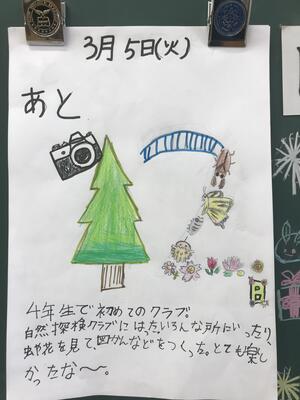 3月5日(火)
あと
7
日
4年生で初めてのクラブ。
自然探検クラブに入った。いろんな所にいったり、
虫や花を見て、図かんなどをつくった。とても楽し
かったな〜。